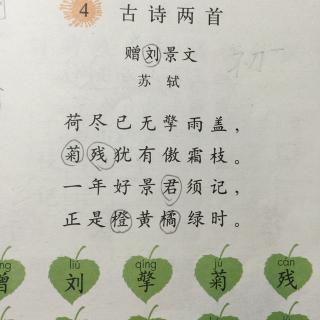 4 古诗两首
赠刘景文
苏 轼
荷尽已无擎雨盖，
菊残犹有傲霜枝。
一年好景君须记，
正是橙黄橘绿时。
liú qíng jú cán
赠 刘 擎 菊 残